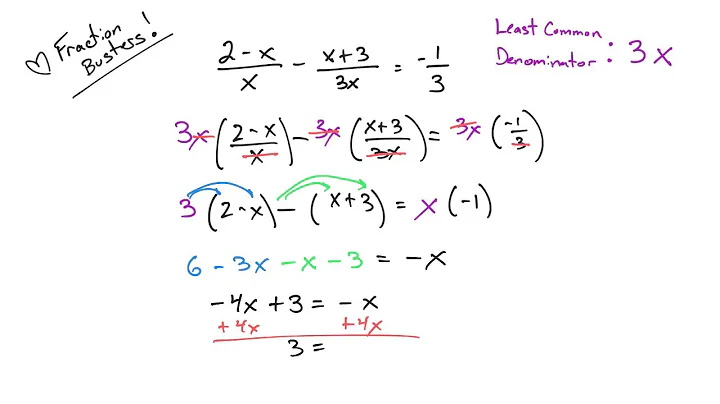 ♡ Fraction
Busters!
Least Common
Denominator: 3x
(2-x)/x - (x+3)/3x = -1/3
3x((2-x)/x) - 3x((x+3)/3x) = 3x(-1/3)
3(2-x) - (x+3) = x(-1)
6 - 3x - x - 3 = -x
-4x + 3 = -x
+4x +4x
3 =